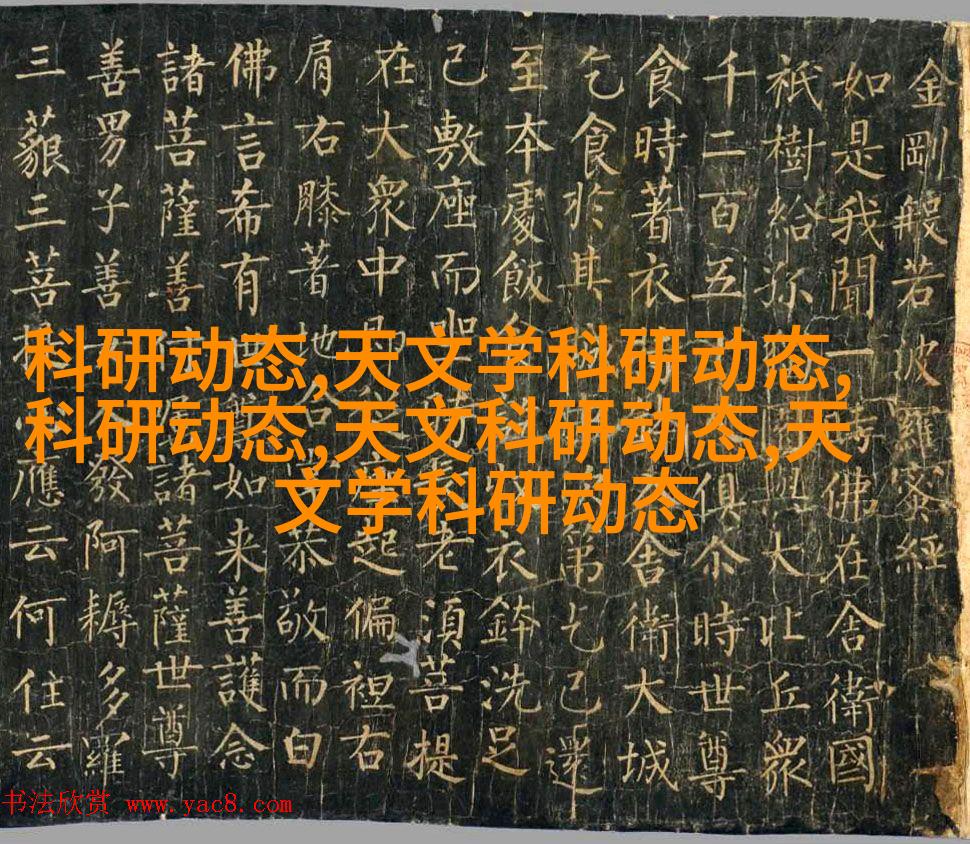 金剛般若波羅蜜經
如是我聞一時佛在舍衛國
祇樹給孤園與大比丘衆
千二百五俱尒時世尊
食時著衣舍衛大城
乞食於其城第乞已還
至本處飯食衣鉢洗足
已敷座而坐老須菩提
在大衆中即起偏袒右
肩右膝著地合恭敬而白
佛言希有世尊如来善護念
諸菩薩善付諸菩薩世尊
善男子善發阿耨多羅
三藐三菩應云何住云
科研动态,天文学科研动态,
科研动态,天文科研动态,天
文学科研动态
书法欣赏 www.yac8.com